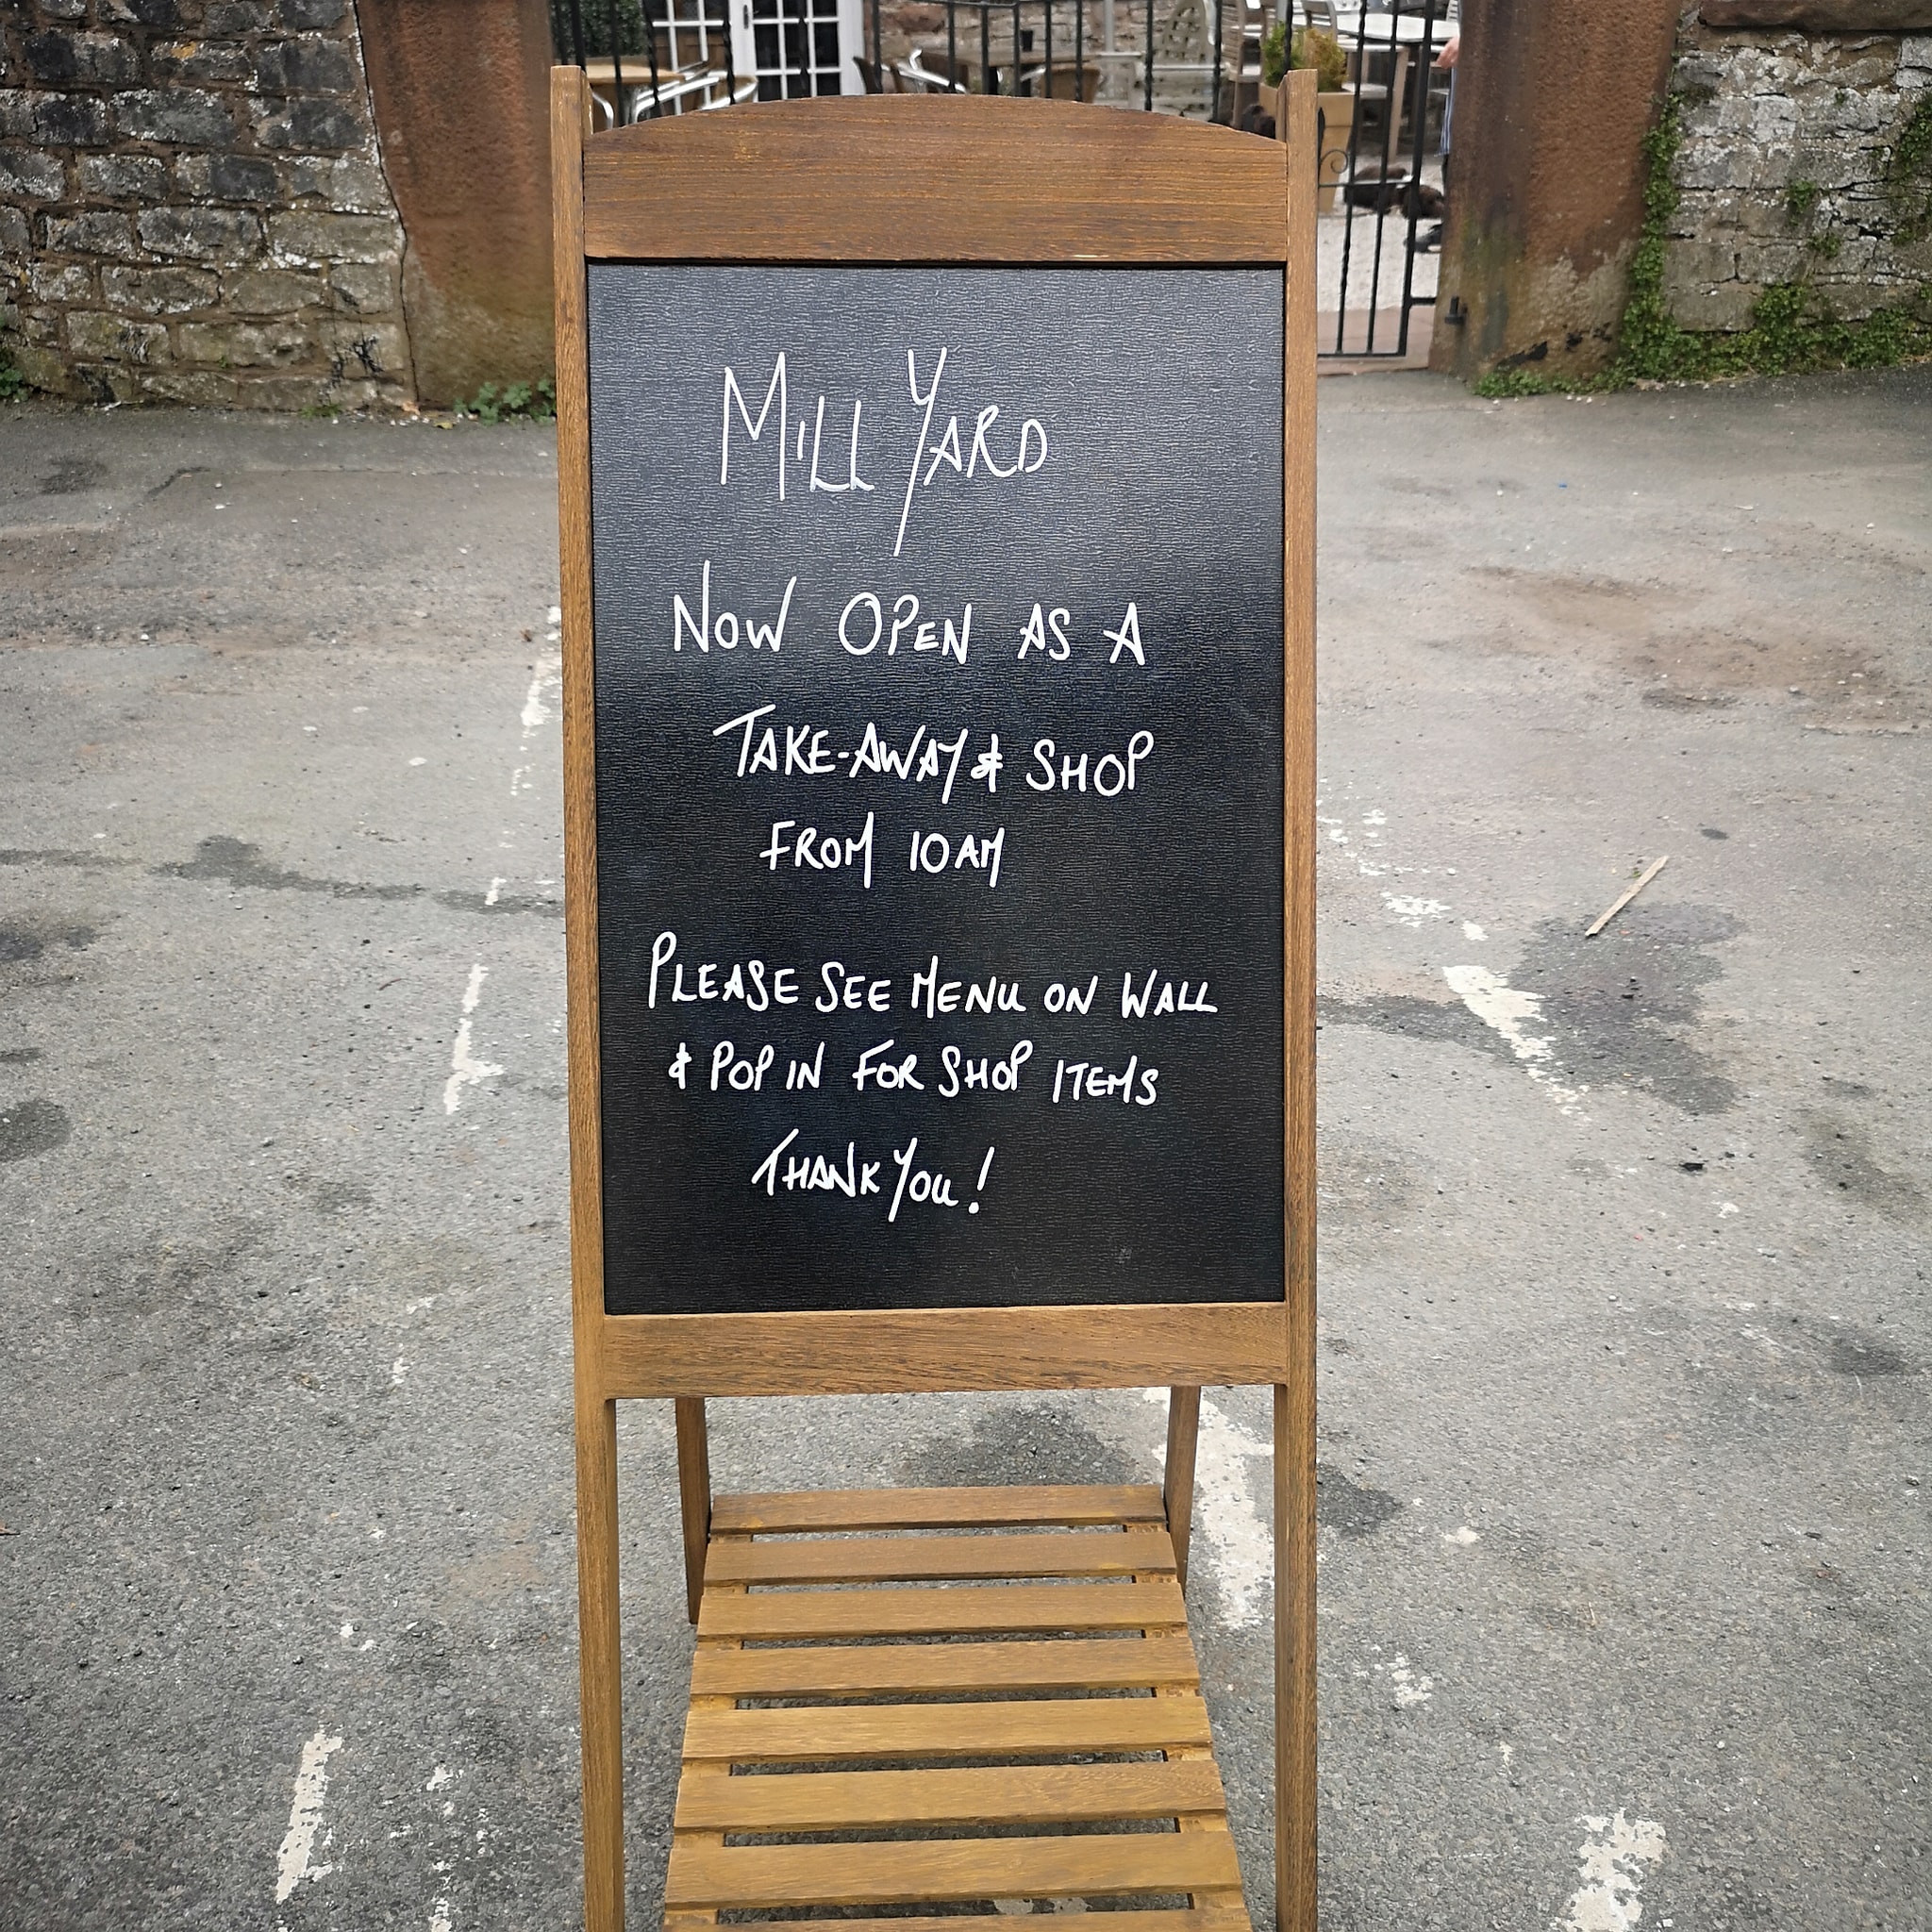 Mill Yard
Now open as a
Take-Away & Shop
from 10am
Please see menu on wall
& pop in for shop items
Thank You!